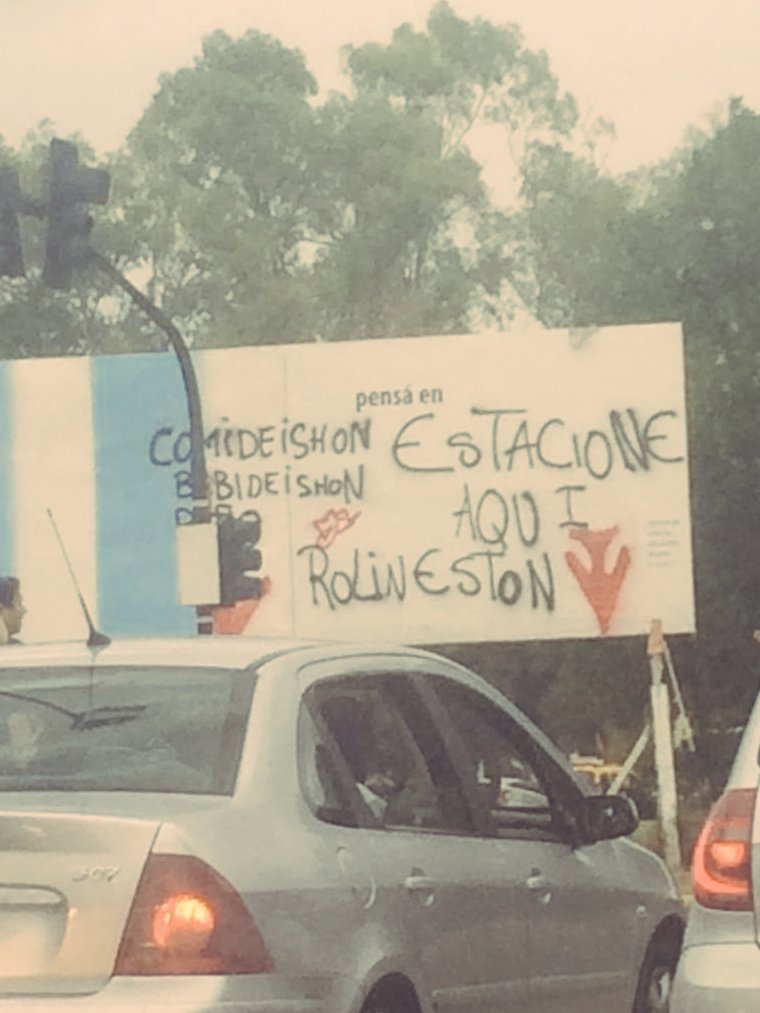 pensá en
COMIDEISHON
BEBIDEISHON
BAÑO
ESTACIONE
AQUI
ROLINESTON
307